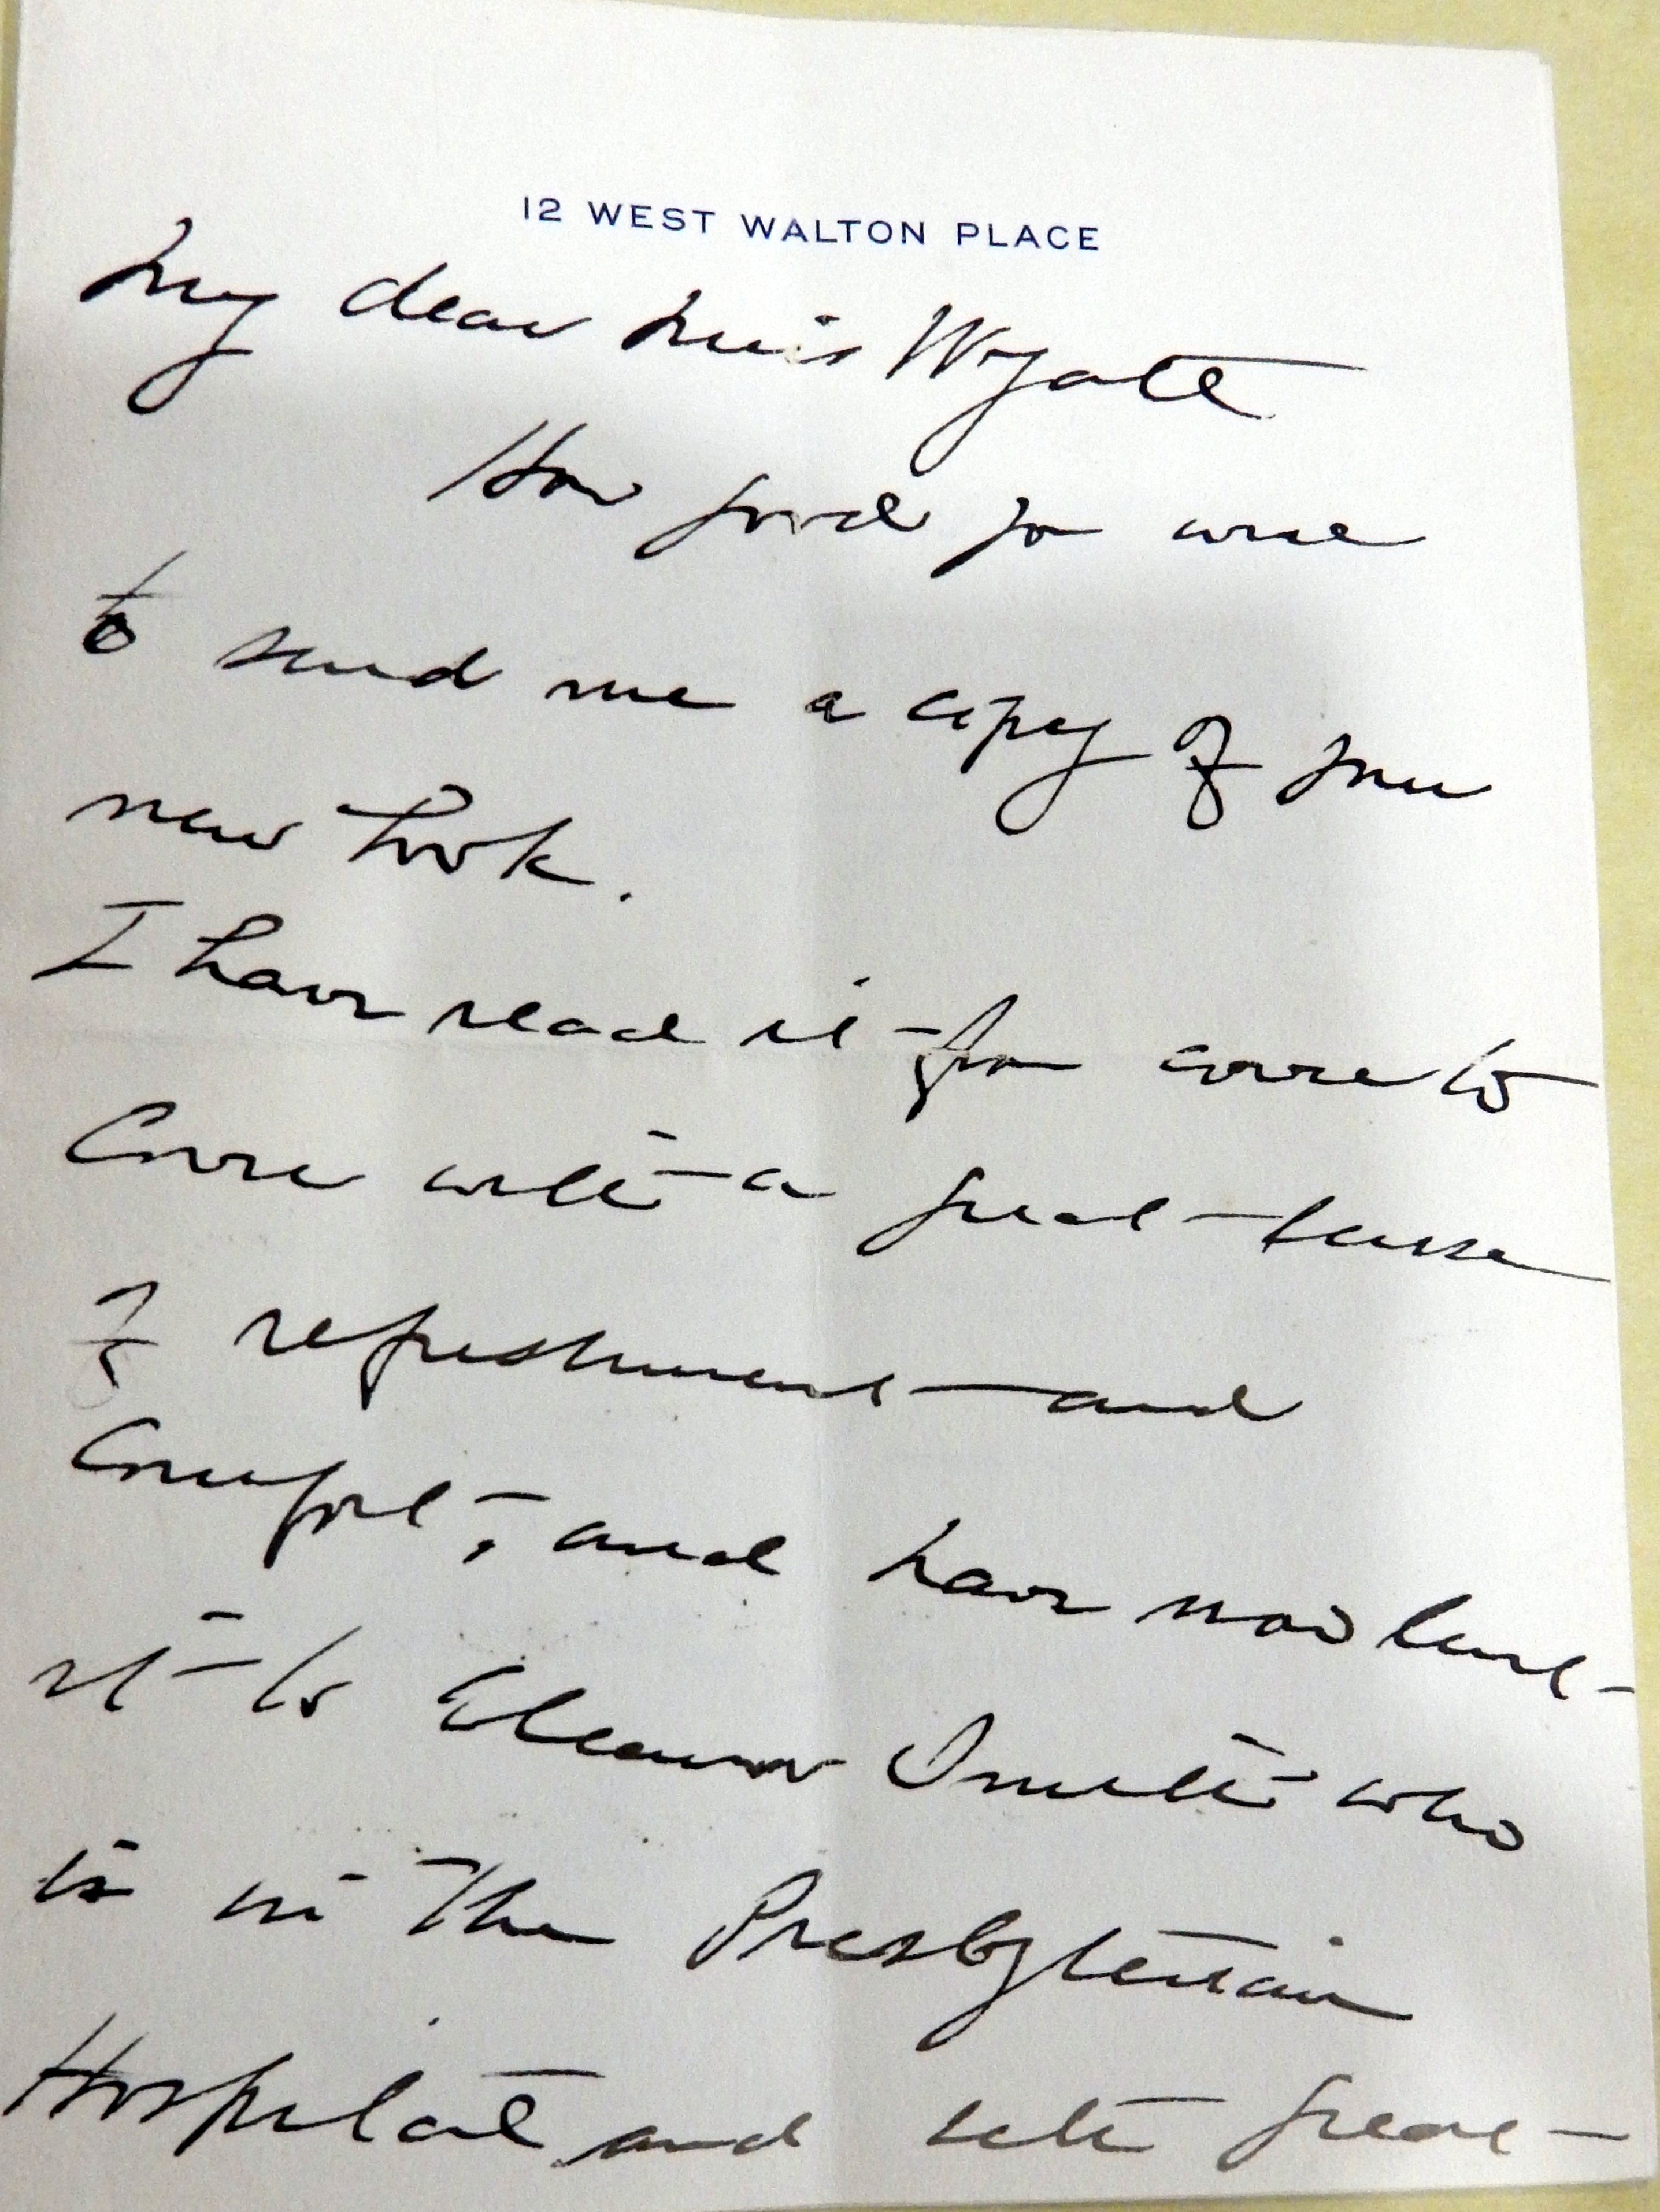 12 WEST WALTON PLACE
My dear Miss Wyatt
How good you were
to send me a copy of your
new book.
I have read it from cover to
Cover with a great sense
of refreshment and
Comfort, and have now lent
it to Eleanor Smith who
is in the Presbyterian
Hospital and with great